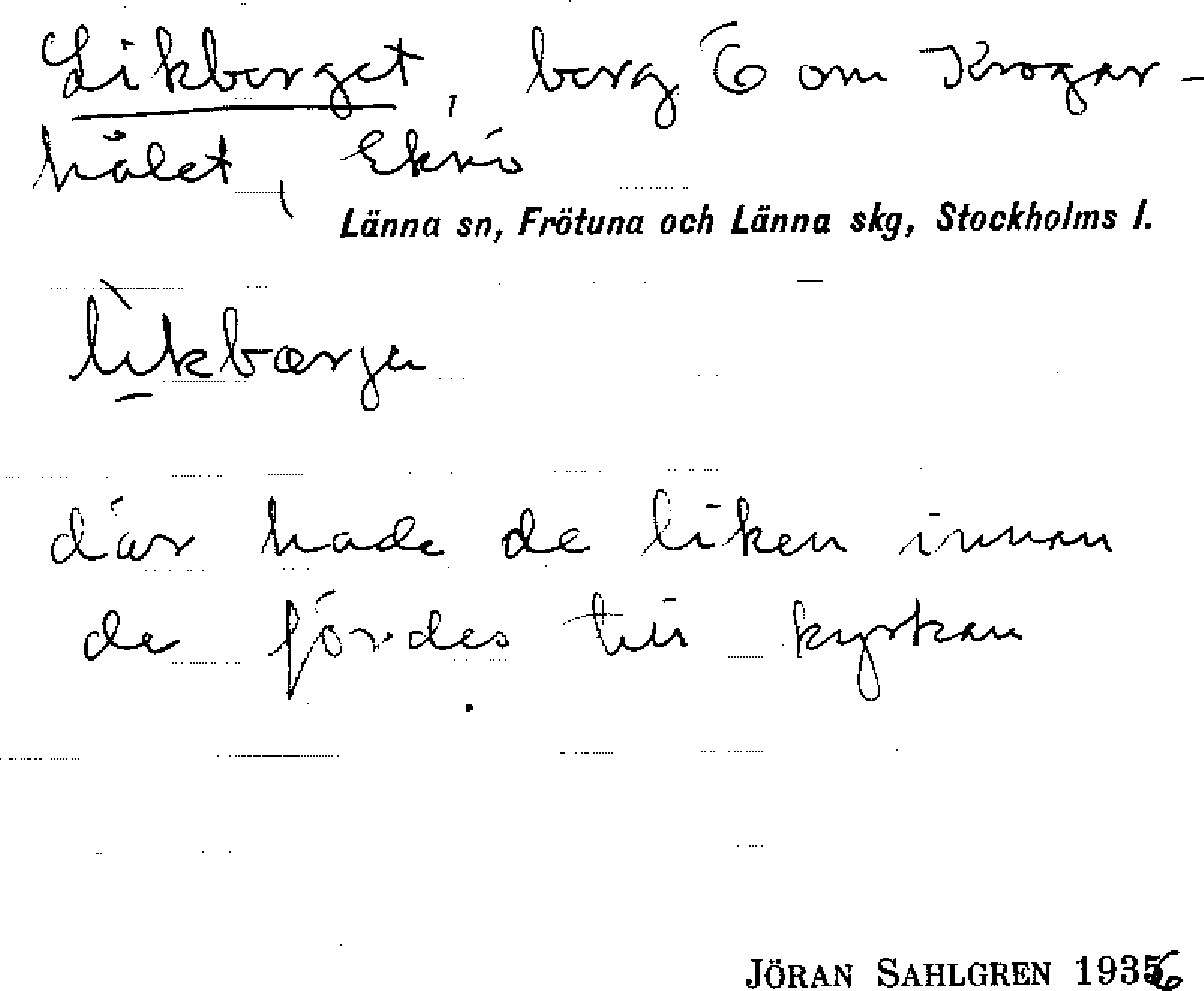 Likberget, berg Ö om Krogar-
hålet, Eknö
Länna sn, Frötuna och Länna skg, Stockholms l.
likbærjı
där hade de liken innan
de fördes till kyrkan
JÖRAN SAHLGREN 1936